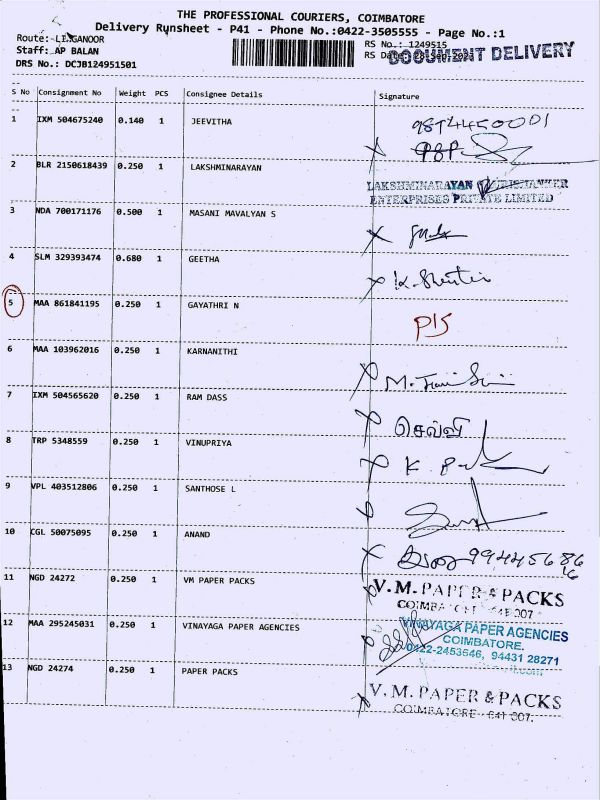 THE PROFESSIONAL COURIERS, COIMBATORE
Delivery Runsheet - P41 - Phone No.:0422-3505555 - Page No.:1
Route: LINGANOOR
Staff: AP BALAN
DRS No.: DCJB124951501
RS No.: 1249515
RS Date
DOCUMENT DELIVERY
S No Consignment No Weight PCS Consignee Details Signature
1 IXM 504675240 0.140 1 JEEVITHA
2 BLR 2150618439 0.250 1 LAKSHMINARAYAN
LAKSHMINARAYAN
ENTERPRISES PRIVATE LIMITED
3 NDA 700171176 0.500 1 MASANI MAVALYAN S
4 SLM 329393474 0.680 1 GEETHA
5 MAA 861841195 0.250 1 GAYATHRI N
6 MAA 103962016 0.250 1 KARNANITHI
7 IXM 504565620 0.250 1 RAM DASS
செல்வி
8 TRP 5348559 0.250 1 VINUPRIYA
9 VPL 403512806 0.250 1 SANTHOSE L
10 CGL 50075095 0.250 1 ANAND
11 NGD 24272 0.250 1 VM PAPER PACKS
V.M. PAPER & PACKS
COIMBATORE - 641 007.
12 MAA 295245031 0.250 1 VINAYAGA PAPER AGENCIES
VINAYAGA PAPER AGENCIES
COIMBATORE.
0422-2453646, 94431 28271
13 NGD 24274 0.250 1 PAPER PACKS
V.M. PAPER & PACKS
COIMBATORE - 641 007.